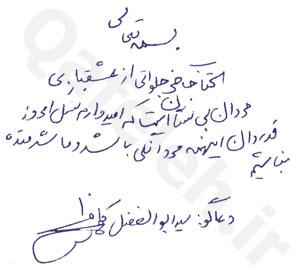 بسمه تعالی
کتاب خوب جلواتی از عشقبازی
مردان بی نشان است که امیدوارم نسل امروز
قدردان اینهمه مردانگی باشد و ما شرمنده
نباشیم
دعاگو: سید ابوالفضل کاظمی
Qafaseh.ir